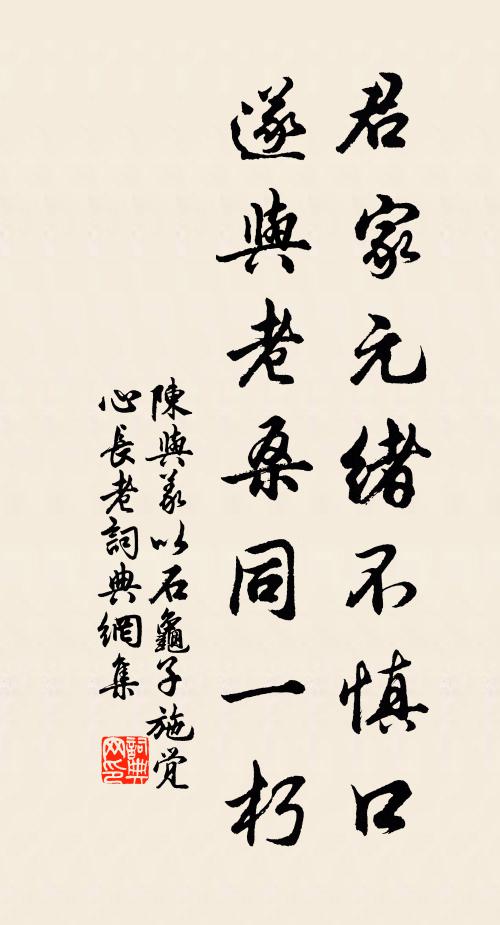 君家元緒不慎口
遂與老桑同一朽
陳與義以石龜子施覚
心長老詞典網集
詞典
网印